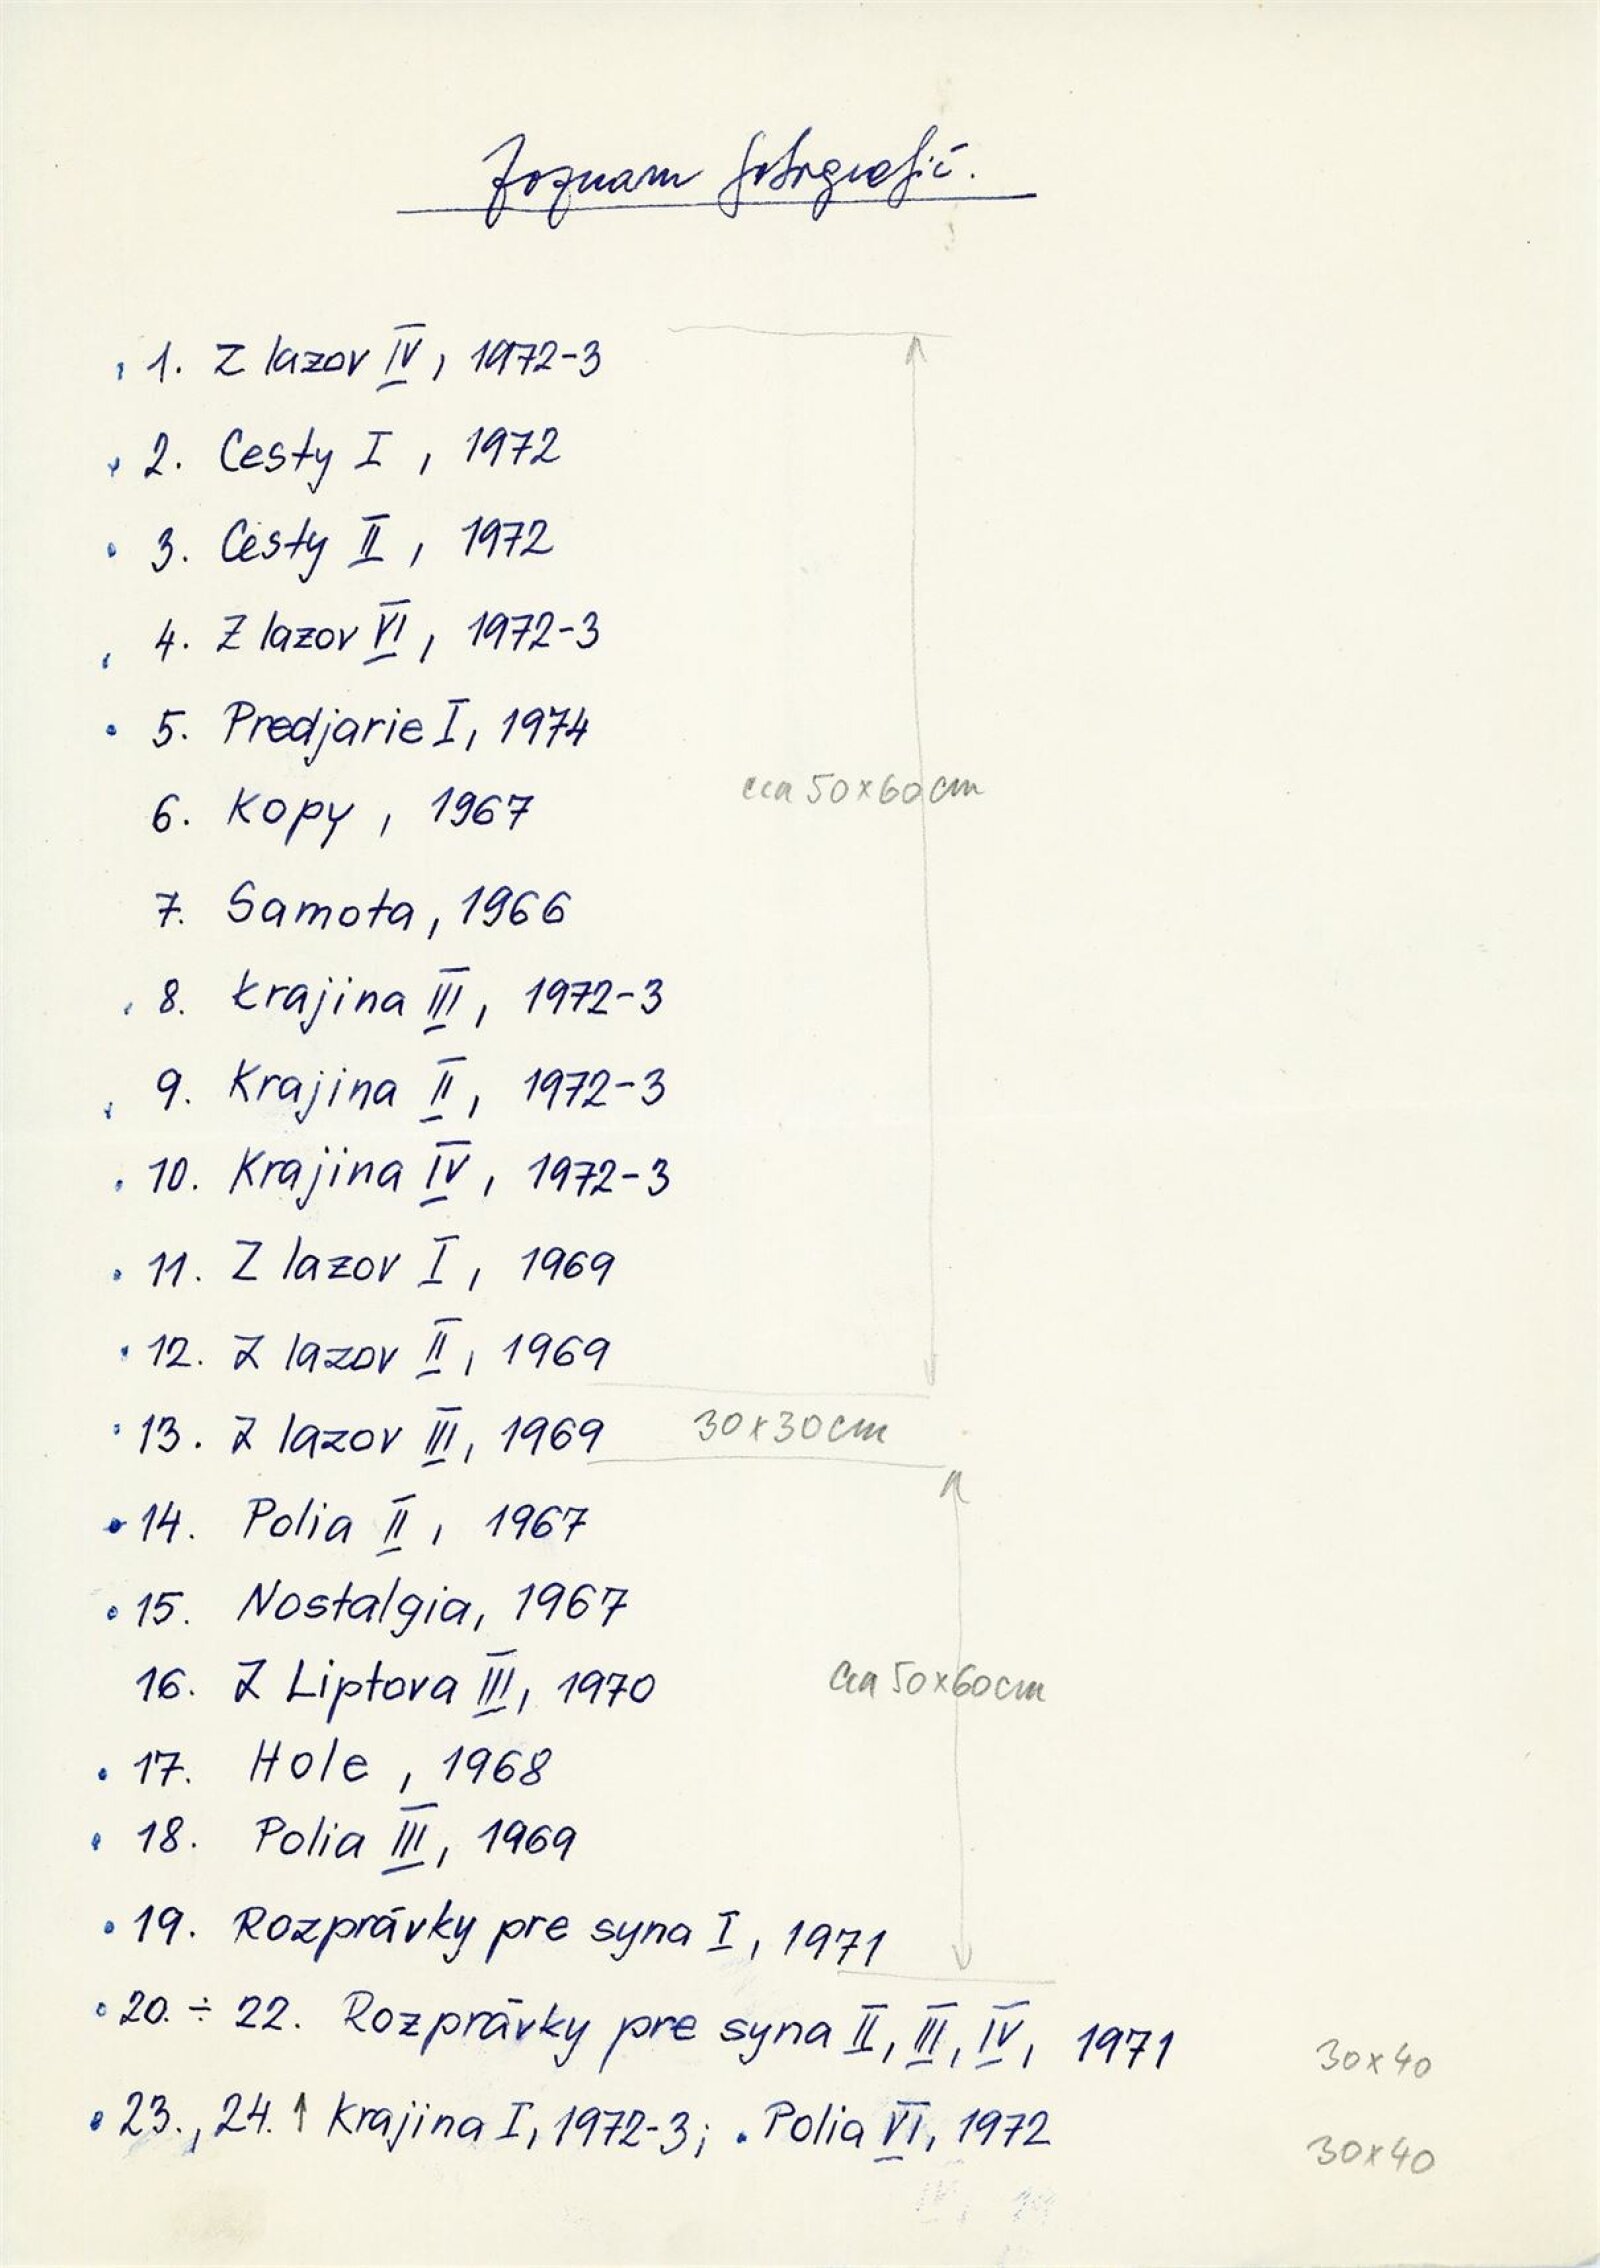 Zoznam fotografií.
1. Z lazov IV, 1972-3
2. Cesty I, 1972
3. Cesty II, 1972
4. Z lazov VI, 1972-3
5. Predjarie I, 1974
cca 50x60cm
6. Kopy, 1967
7. Samota, 1966
8. Krajina III, 1972-3
9. Krajina II, 1972-3
10. Krajina IV, 1972-3
11. Z lazov I, 1969
12. Z lazov II, 1969
13. Z lazov III, 1969 30x30cm
14. Polia II, 1967
15. Nostalgia, 1967
16. Z Liptova III, 1970 cca 50x60cm
17. Hole, 1968
18. Polia III, 1969
19. Rozprávky pre syna I, 1971
20. ÷ 22. Rozprávky pre syna II, III, IV, 1971 30x40
23., 24. ↑ Krajina I, 1972-3; . Polia VI, 1972 30x40